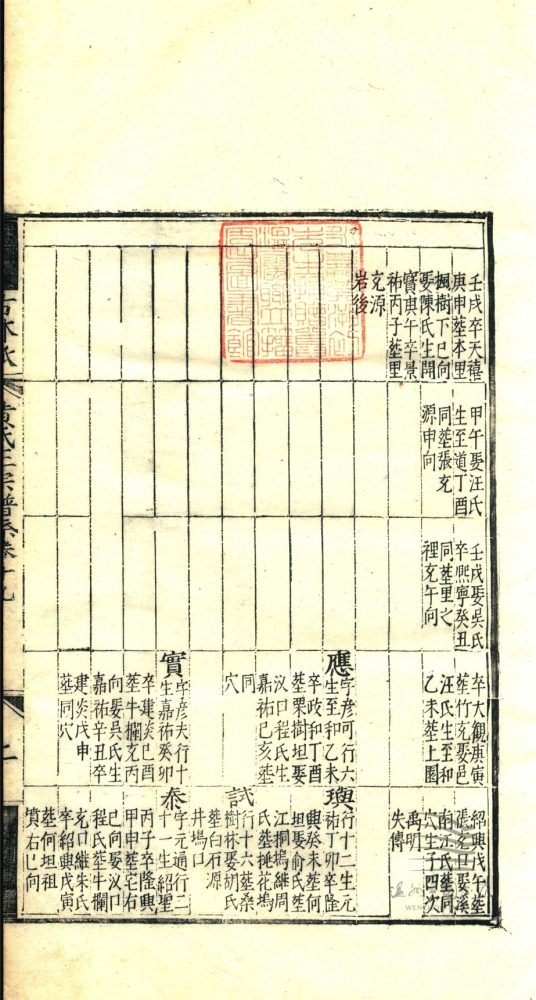 壬戌卒天禧
庚申葬本里
楓樹下巳向
娶陳氏生開
寶庚午卒景
祐丙子葬里
充源
岩後
甲午娶汪氏
生至道丁酉
同葬張充
源申向
壬戌娶吳氏
卒熙寧癸丑
同葬里之
裡充午向
卒大觀庚寅
葬竹充娶邑
汪氏生至和
乙未葬上園
應
字彥可行六
生至和乙未
卒政和丁酉
葬栗樹坦娶
汊口程氏生
嘉祐己亥葬
同
穴
實
字彥夫行十
生嘉祐癸卯
卒建炎己酉
葬牛欄充丙
向娶吳氏生
嘉祐辛丑卒
建炎戊申
葬同穴
紹興戊午葬
張充巳娶溪
南江氏葬同
穴生子四次
禹明
失傳
璵
行十二生元
祐丁卯卒隆
興癸未葬何
坦娶俞氏葬
江桐塢繼周
氏葬槐花塢
試
行十六葬桑
樹林娶胡氏
葬白石源
井塢口
泰
字元通行二
十一生紹聖
丙子卒隆興
甲申葬宅右
巳向娶汊口
程氏葬牛欄
充口繼朱氏
卒紹興戊寅
葬何坦祖
墳右巳向
黃氏正宗譜系卷十九